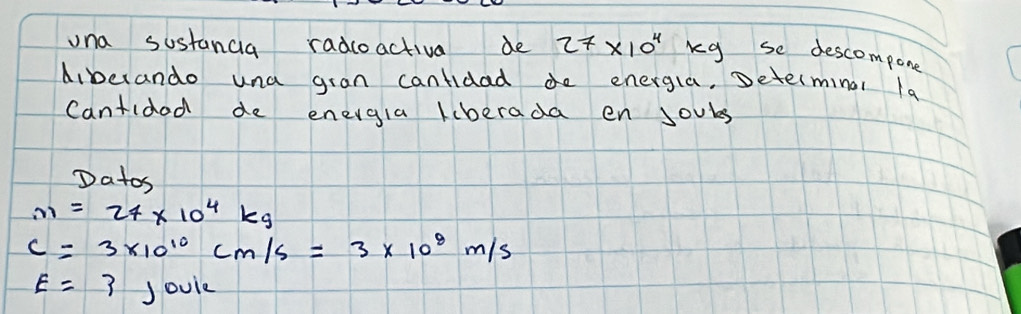 una sustancia radioactiva de 27 x 10⁴ kg se descompone
liberando una gran cantidad de energia. Determinar la
Cantidad de energia liberada en Joules
Datos
m = 27 x 10⁴ kg
C = 3 x 10¹⁰ cm/s = 3 x 10⁸ m/s
E = ? Joule